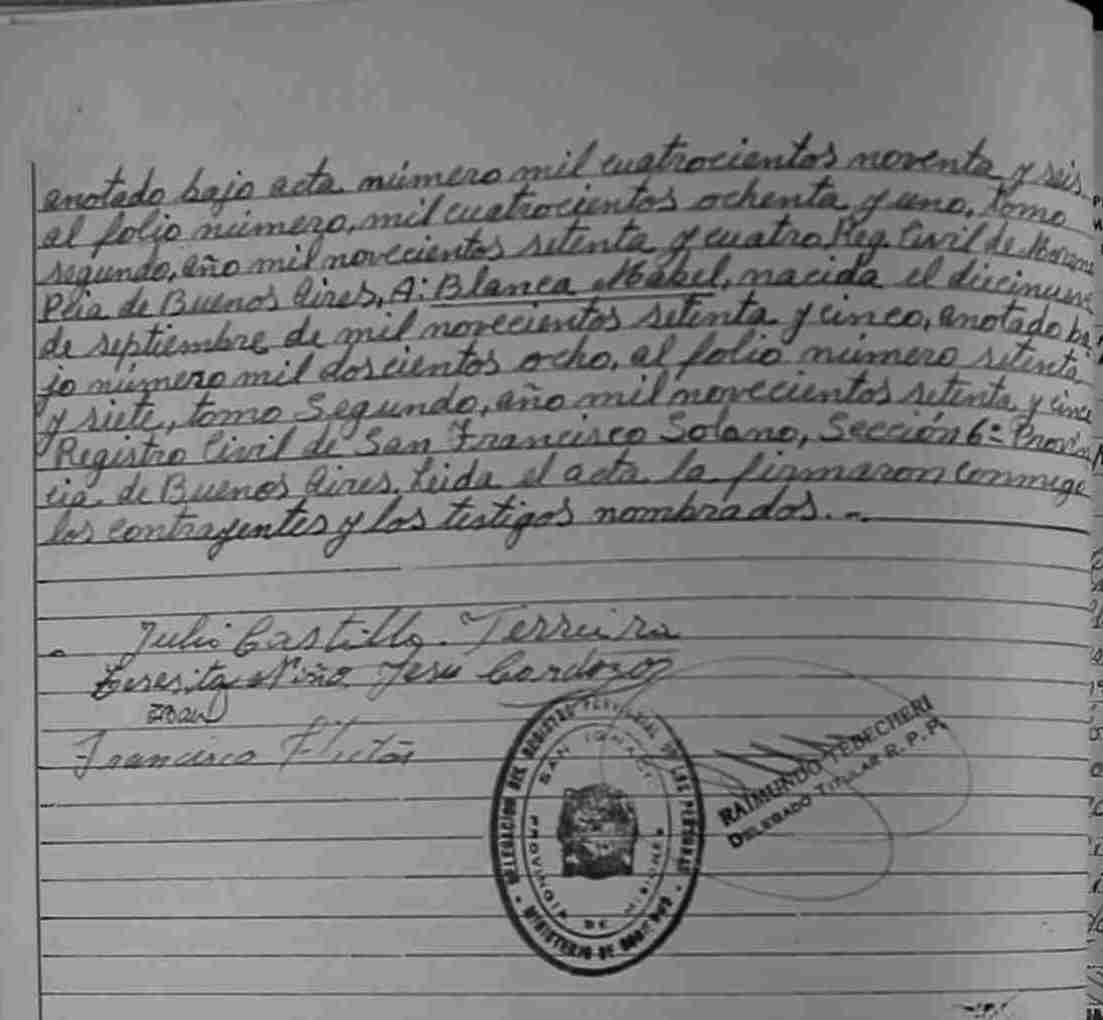 anotado bajo acta número mil cuatrocientos noventa y seis
al folio número, mil cuatrocientos ochenta y uno, tomo
segundo, año mil novecientos setenta y cuatro Reg. Civil de Moreno
Pcia de Buenos Aires, A: Blanca Mabel, nacida el diecinueve
de septiembre de mil novecientos setenta y cinco, anotado ba
jo número mil doscientos ocho, al folio número setenta
y siete, tomo Segundo, año mil novecientos setenta y cinco
Registro Civil de San Francisco Solano, Sección 6= Provin
cia de Buenos Aires. Leida el acta la firmaron conmigo
los contrayentes y los testigos nombrados.-.
Julio Castillo. Ferreira
Teresita Niño Jesu Cardozo
Francisco
DELEGACION DEL REGISTRO PROVINCIAL DE LAS PERSONAS
SAN IGNACIO
PROVINCIA DE MISIONES
MINISTERIO DE GOBIERNO
RAIMUNDO TEBECHERI
DELEGADO TITULAR R. P. P.